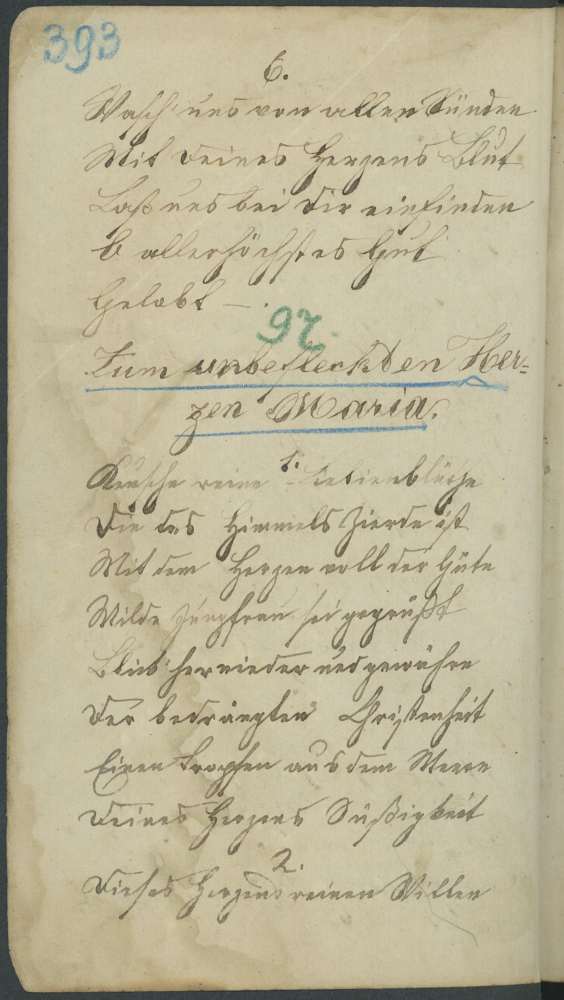 393
6.
Wasch' uns von allen Sünden
Mit Deines Herzens Blut
Laß uns bei dir einfinden
O allerhöchstes Gut
Gelobt —.
92.
Zum unbefleckten Her-
zen Maria.
1.
Keusche reine Lilienblüthe
Die des Himmels Zierde ist
Mit dem Herzen voll der Güte
Milde Jungfrau sei gegrüßt
Blick' hernieder und gewähre
Der bedrängten Christenheit
Einen Tropfen aus dem Meere
Deines Herzens Süßigkeit
2.
Dieses Herzens reinen Willen